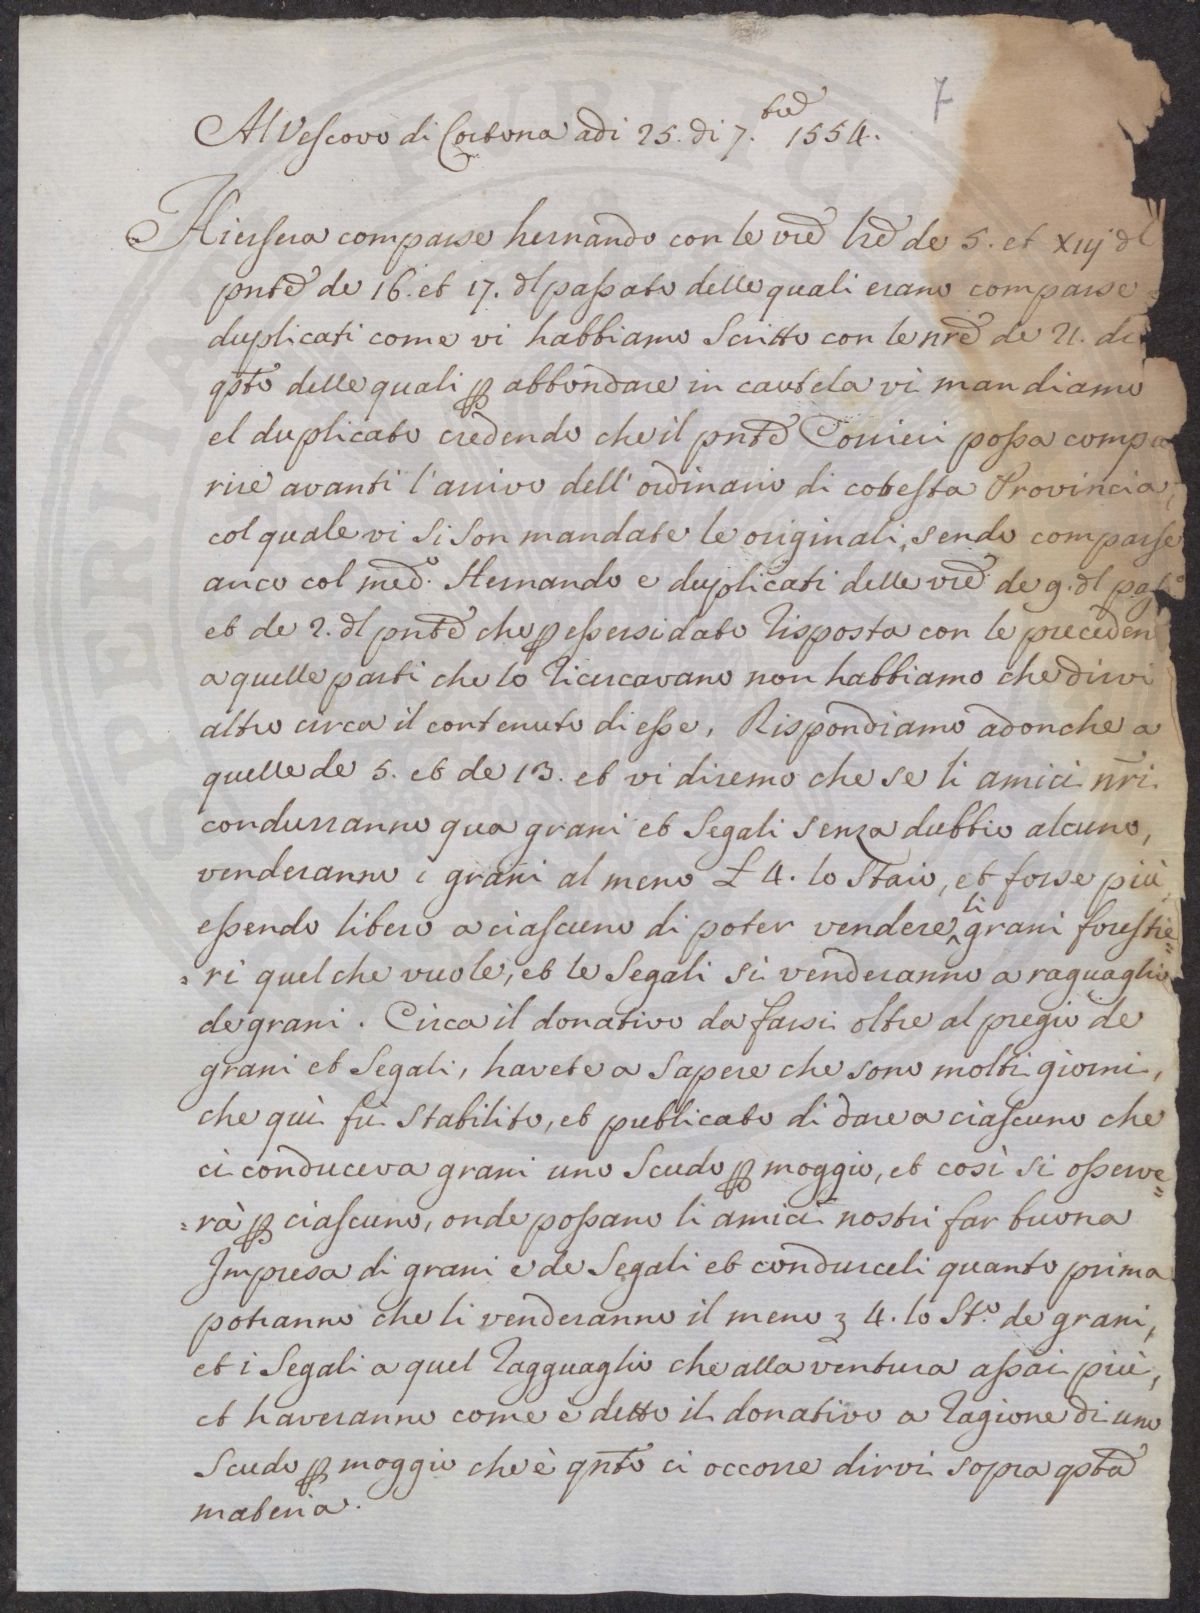 7
Al Vescovo di Cortona adi 25. di 7.bre 1554.
Hiersera comparse hernando con le vre lre de 5. et xiij dl
pnte de 16. et 17. dl passato delle quali erano comparse
duplicati come vi habbiamo Scritto con le nre de 21. di
qsto delle quali p abbondare in cautela vi mandiamo
el duplicato credendo che il pnte Corrieri possa compa
rire avanti l'arrivo dell'ordinario di cotesta Provincia,
col quale vi si son mandate le originali, sendo comparse
anco col med.o Hernando e duplicati delle vre de 9. dl pas.to
et de 2. dl pnte che p essersi dato risposta con le preceden
a quelle parti che lo ricercavano non habbiamo che dirvi
altro circa il contenuto di esse, Rispondiamo adonche a
quelle de 5. et de 13. et vi diremo che se li amici nri
condurranno qua grani et Segali senza dubbio alcuno,
venderanno i grani al meno £ 4. lo Staio, et forse più
essendo libero a ciascuno di poter vendere li grani forestie=
=ri quel che vuole, et le Segali si venderanno a raguaglio
de grani. Circa il donativo da farsi oltre al pregio de
grani et Segali, havete a sapere che sono molti giorni,
che quì fù stabilito, et publicato di dare a ciascuno che
ci conduceva grani uno Scudo p moggio, et così si osserve=
=rà p ciascuno, onde possano li amici nostri far buona
Impresa di grani e de Segali et condurceli quanto prima
potranno che li venderanno il meno 4. lo St.o de grani,
et i Segali a quel ragguaglio che alla ventura assai più,
et haveranno come è detto il donativo a ragione di uno
Scudo p moggio che è qnto ci occorre dirvi sopra qsta
materia.